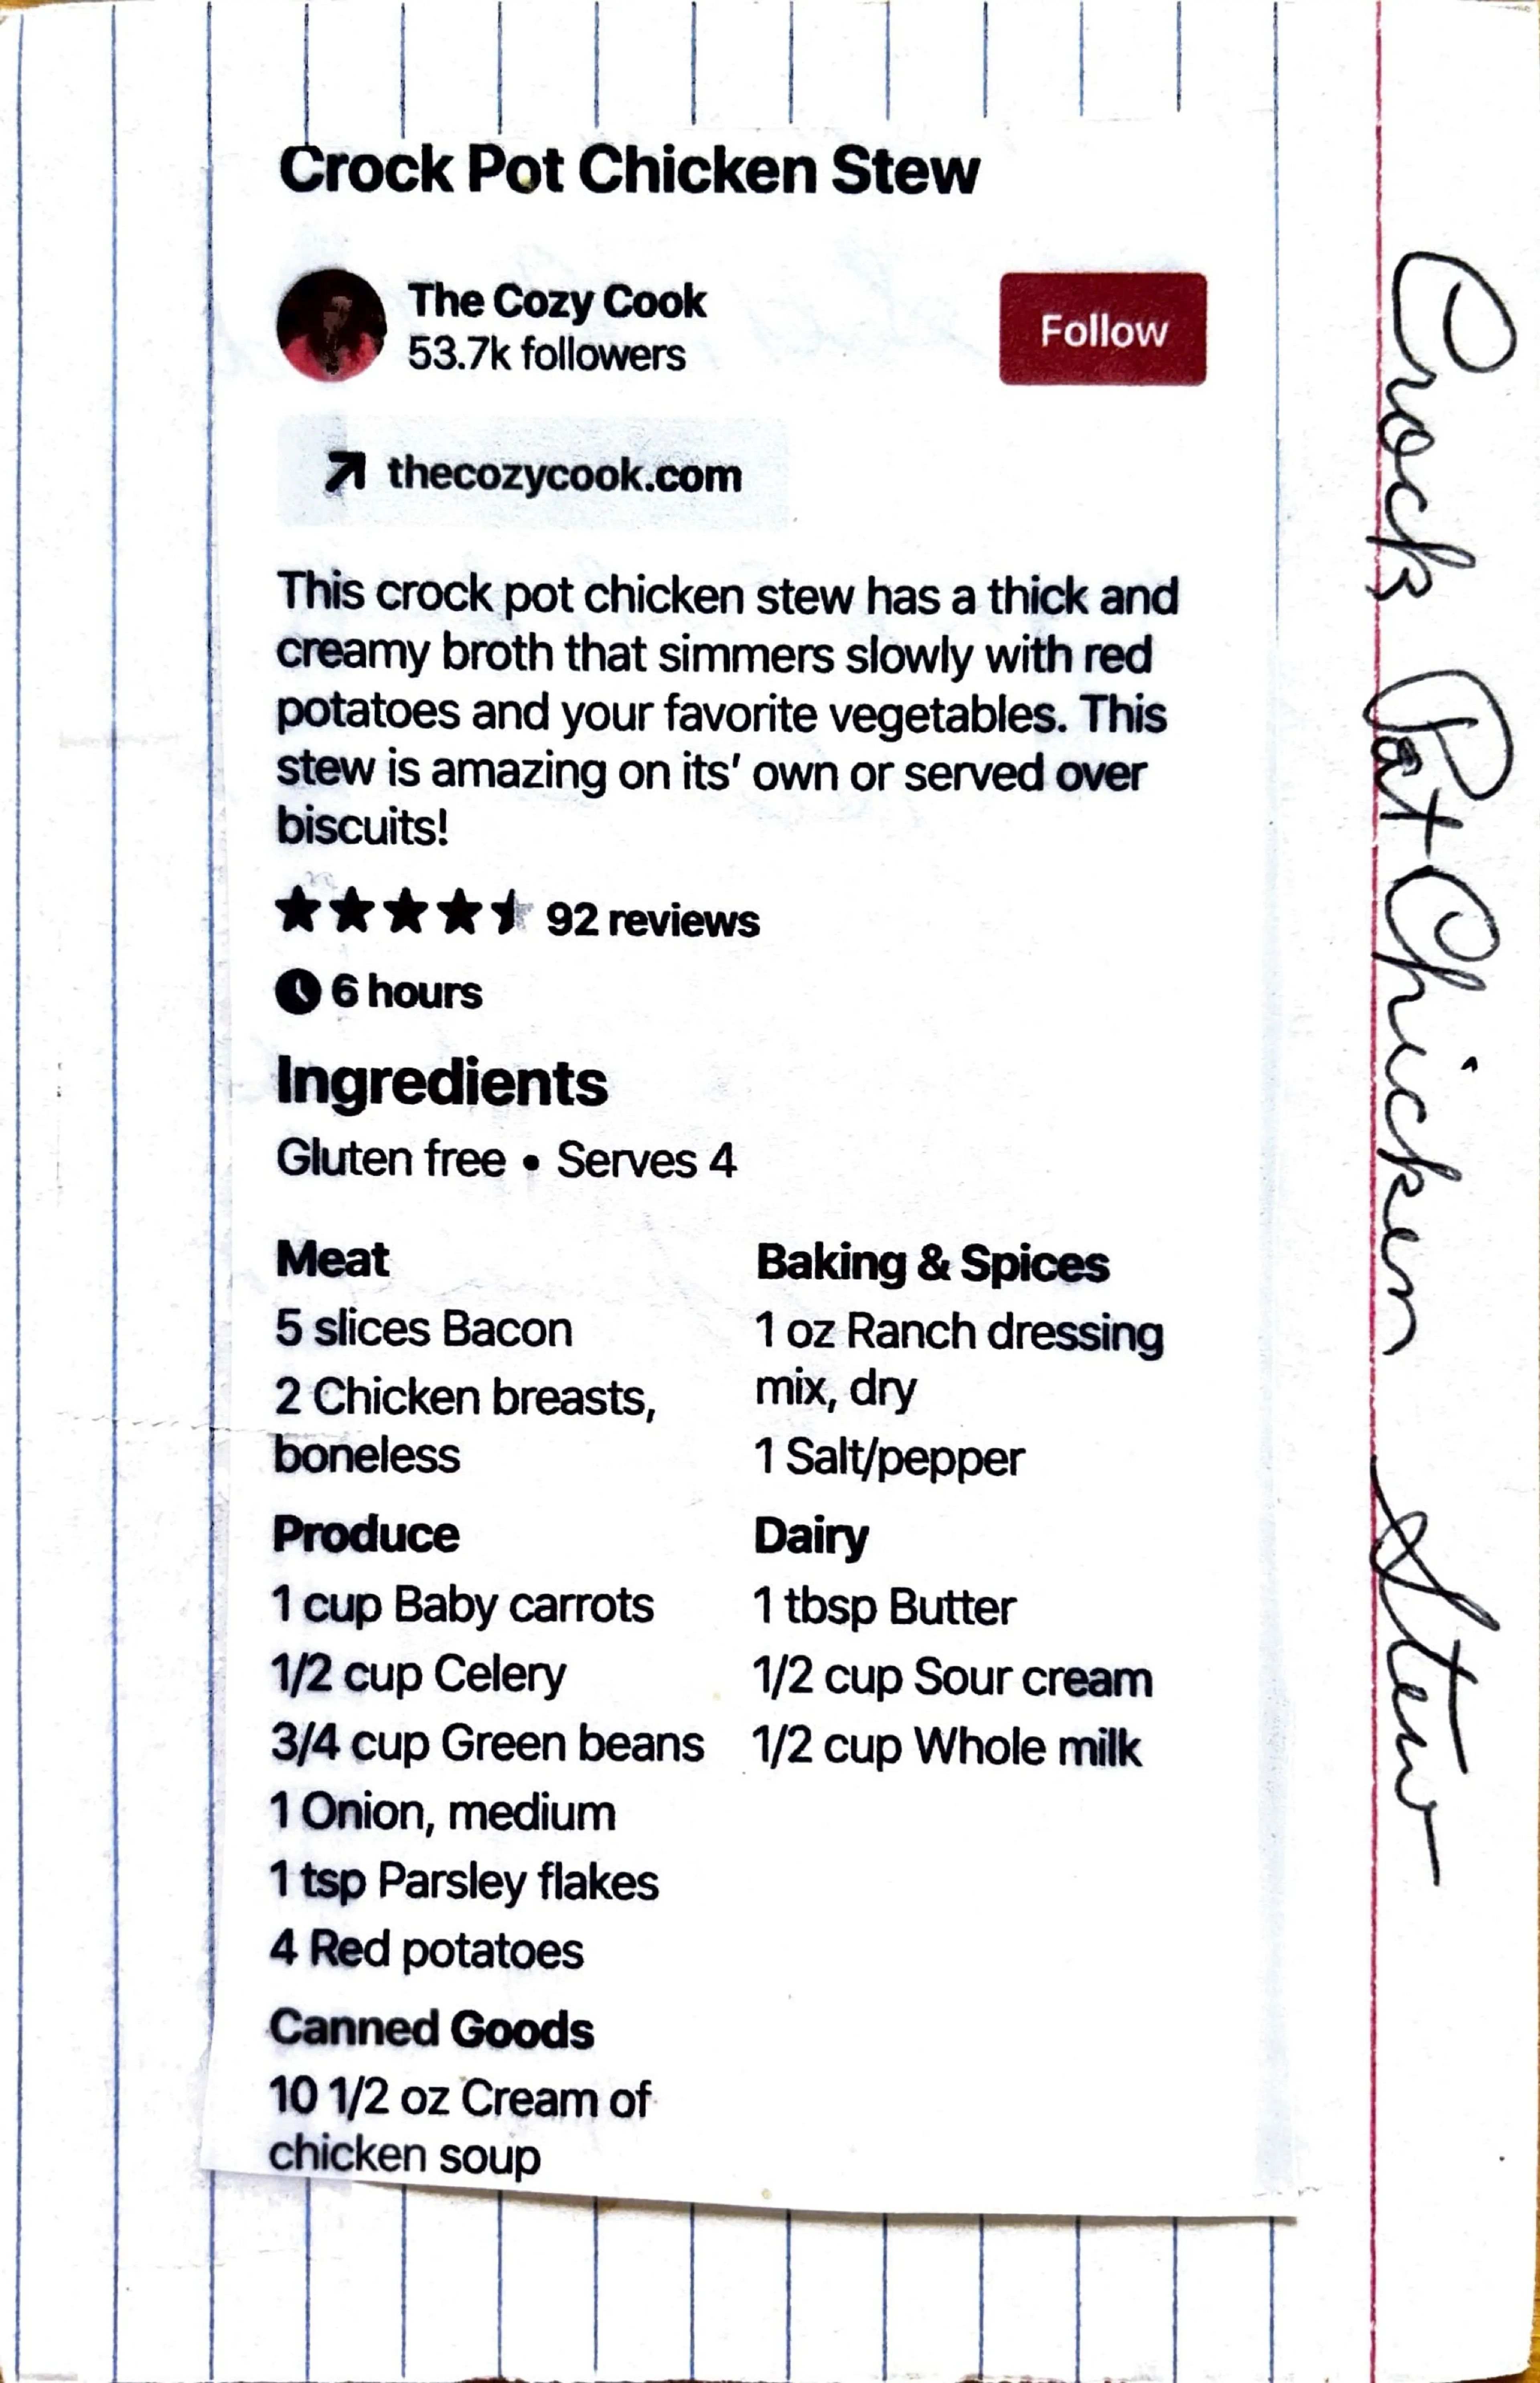 Crock Pot Chicken Stew
The Cozy Cook
53.7k followers
Follow
thecozycook.com
This crock pot chicken stew has a thick and
creamy broth that simmers slowly with red
potatoes and your favorite vegetables. This
stew is amazing on its' own or served over
biscuits!
92 reviews
6 hours
Ingredients
Gluten free • Serves 4
Meat
5 slices Bacon
2 Chicken breasts,
boneless
Produce
1 cup Baby carrots
1/2 cup Celery
3/4 cup Green beans
1 Onion, medium
1 tsp Parsley flakes
4 Red potatoes
Canned Goods
10 1/2 oz Cream of
chicken soup
Baking & Spices
1 oz Ranch dressing
mix, dry
1 Salt/pepper
Dairy
1 tbsp Butter
1/2 cup Sour cream
1/2 cup Whole milk
Crock Pot Chicken Stew